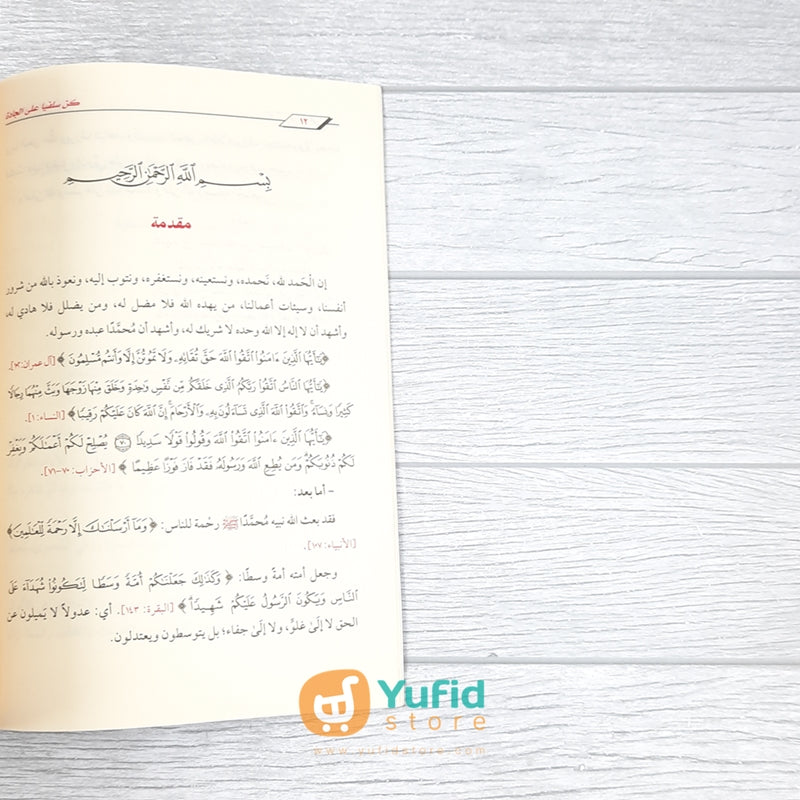 كن سلفيا على الجادة
١٢
بِسْمِ اللَّهِ الرَّحْمَٰنِ الرَّحِيمِ
مقدمة
إن الْحَمد لله، نَحمده، ونستعينه، ونستغفره، ونتوب إليه، ونعوذ بالله من شرور
أنفسنا، وسيئات أعمالنا، من يهده الله فلا مضل له، ومن يضلل فلا هادي له،
وأشهد أن لا إله إلا الله وحده لا شريك له، وأشهد أن مُحمدًا عبده ورسوله.
﴿يَٰٓأَيُّهَا ٱلَّذِينَ ءَامَنُوا۟ ٱتَّقُوا۟ ٱللَّهَ حَقَّ تُقَائِهِۦ وَلَا تَمُوتُنَّ إِلَّا وَأَنتُم مُّسْلِمُونَ﴾ [آل عمران:١٠٢].
﴿يَٰٓأَيُّهَا ٱلنَّاسُ ٱتَّقُوا۟ رَبَّكُمُ ٱلَّذِى خَلَقَكُم مِّن نَّفْسٍ وَٰحِدَةٍ وَخَلَقَ مِنْهَا زَوْجَهَا وَبَثَّ مِنْهُمَا رِجَالًا
كَثِيرًا وَنِسَآءً ۚ وَٱتَّقُوا۟ ٱللَّهَ ٱلَّذِى تَسَآءَلُونَ بِهِۦ وَٱلْأَرْحَامَ ۚ إِنَّ ٱللَّهَ كَانَ عَلَيْكُمْ رَقِيبًا﴾ [النساء:١].
﴿يَٰٓأَيُّهَا ٱلَّذِينَ ءَامَنُوا۟ ٱتَّقُوا۟ ٱللَّهَ وَقُولُوا۟ قَوْلًا سَدِيدًا ٧٠ يُصْلِحْ لَكُمْ أَعْمَٰلَكُمْ وَيَغْفِرْ
لَكُمْ ذُنُوبَكُمْ ۗ وَمَن يُطِعِ ٱللَّهَ وَرَسُولَهُۥ فَقَدْ فَازَ فَوْزًا عَظِيمًا﴾ [الأحزاب: ٧٠-٧١].
- أما بعد:
فقد بعث الله نبيه مُحمدًا ﷺ رحْمة للناس: ﴿وَمَآ أَرْسَلْنَٰكَ إِلَّا رَحْمَةً لِّلْعَٰلَمِينَ﴾
[الأنبياء: ١٠٧].
وجعل أمته أمة وسطًا: ﴿وَكَذَٰلِكَ جَعَلْنَٰكُمْ أُمَّةً وَسَطًا لِّتَكُونُوا۟ شُهَدَآءَ عَلَى
ٱلنَّاسِ وَيَكُونَ ٱلرَّسُولُ عَلَيْكُمْ شَهِيدًا ۗ﴾ [البقرة: ١٤٣]. أي: عدولاً لا يَميلون عن
الحق لا إلَى غلوٍّ، ولا إلَى جفاء؛ بل يتوسطون ويعتدلون.
Yufid
store
www.yufidstore.com